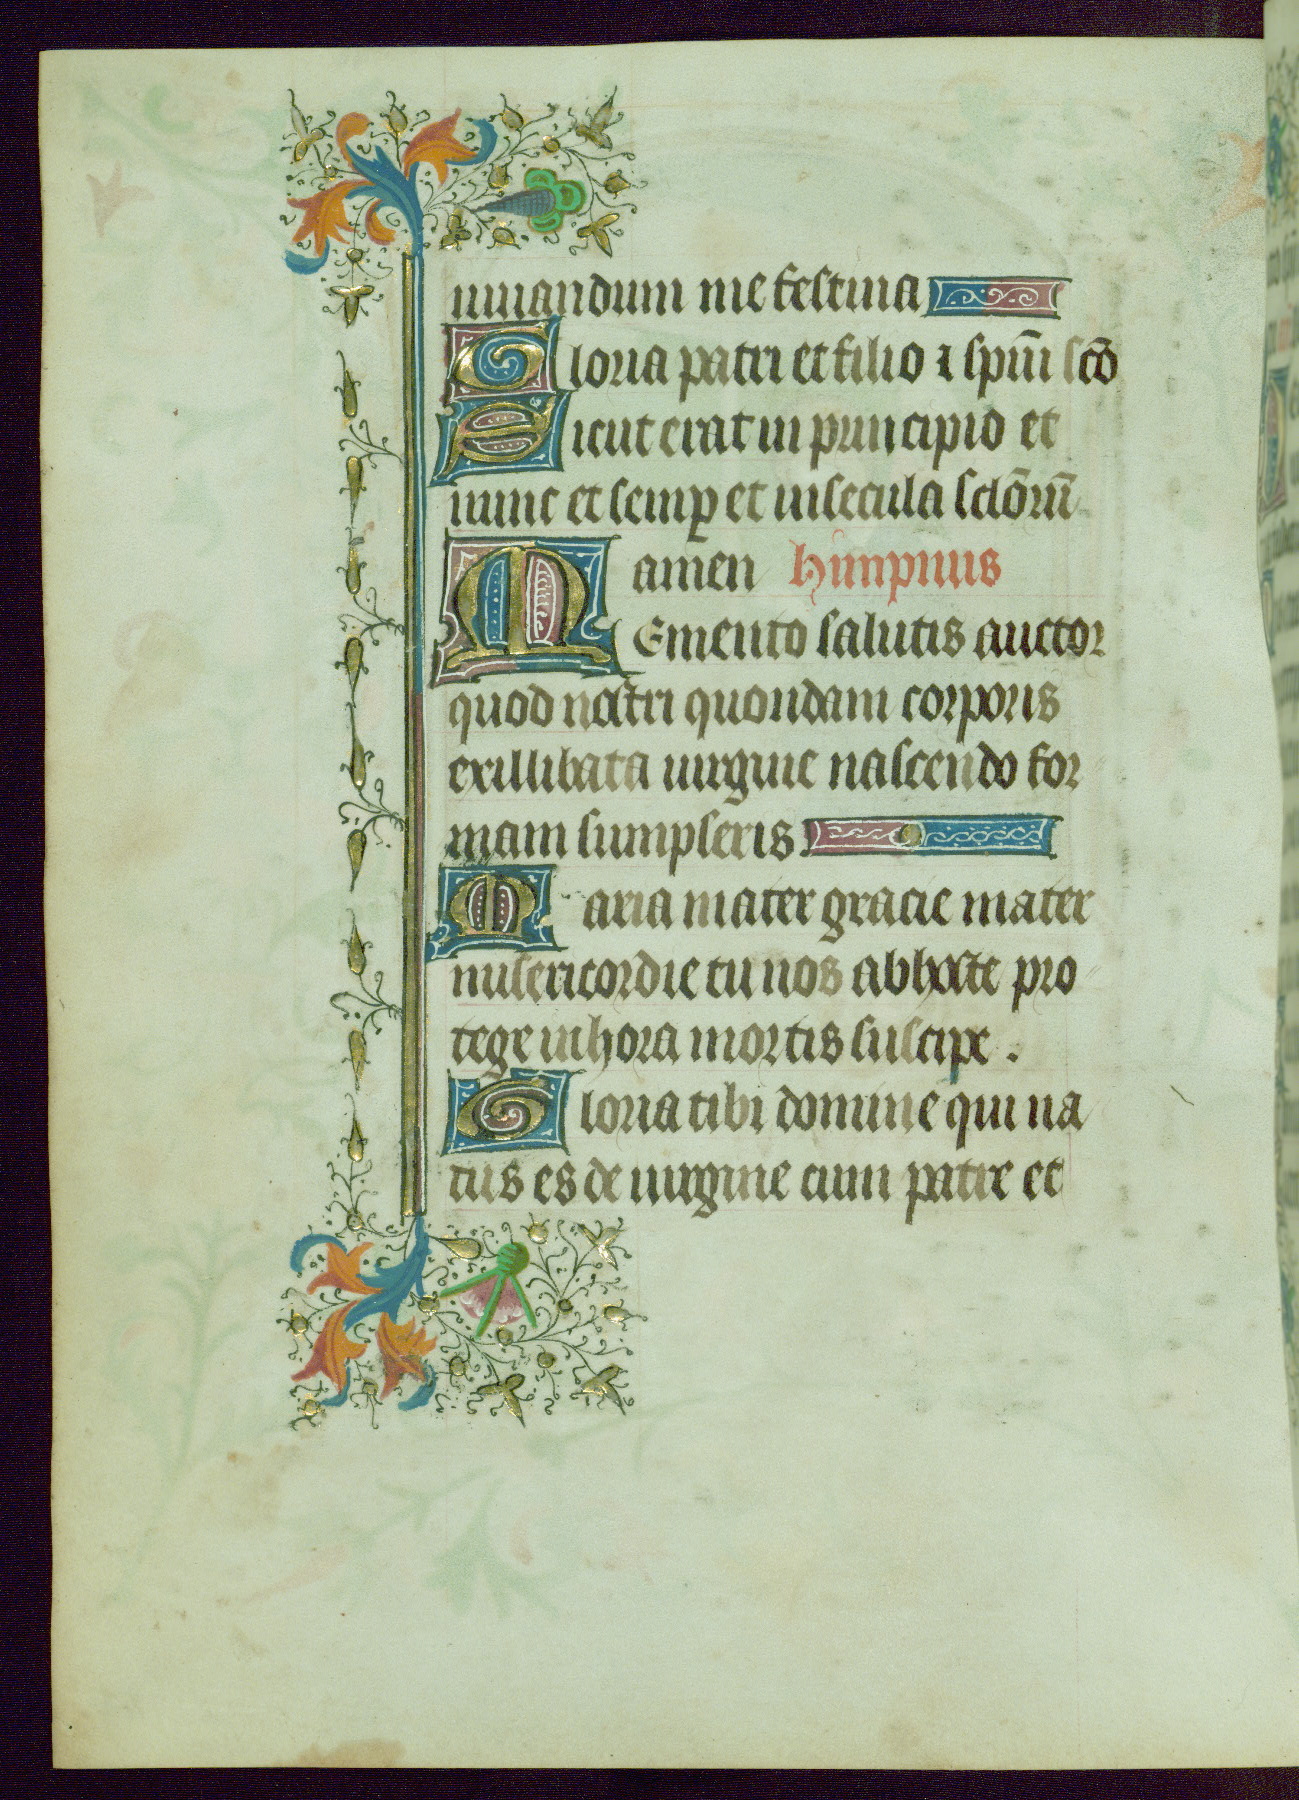 iuuandum me festina
Gloria patri et filio ⁊ spūi sc̄o
Sicut erat in principio et
nunc et semp̱ et in secula sclōrū
amen himpnus
Memento salutis auctor
quod nostri quondam corporis
ex illibata uirgine nascendo for
mam sumpseris.
Maria mater gracie mater
misericordie tu nos ab hoste pro
tege in hora mortis suscipe .
Gloria tibi domine qui na
tus es de uirgine cum patre et